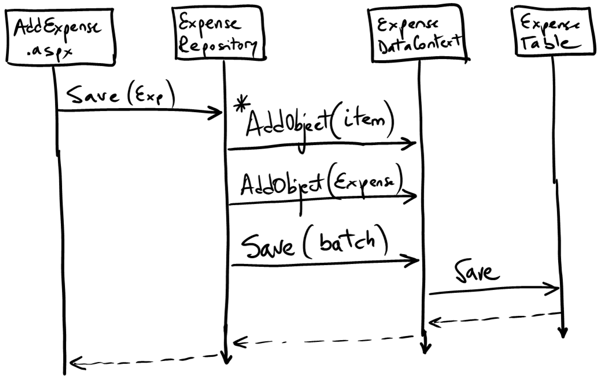 AddExpense
.aspx
Expense
Repository
Expense
DataContext
Expense
Table
Save (Exp)
*AddObject(item)
AddObject(Expense)
Save (batch)
Save